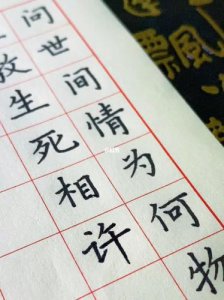 飄
问世间情为何物
生死相许